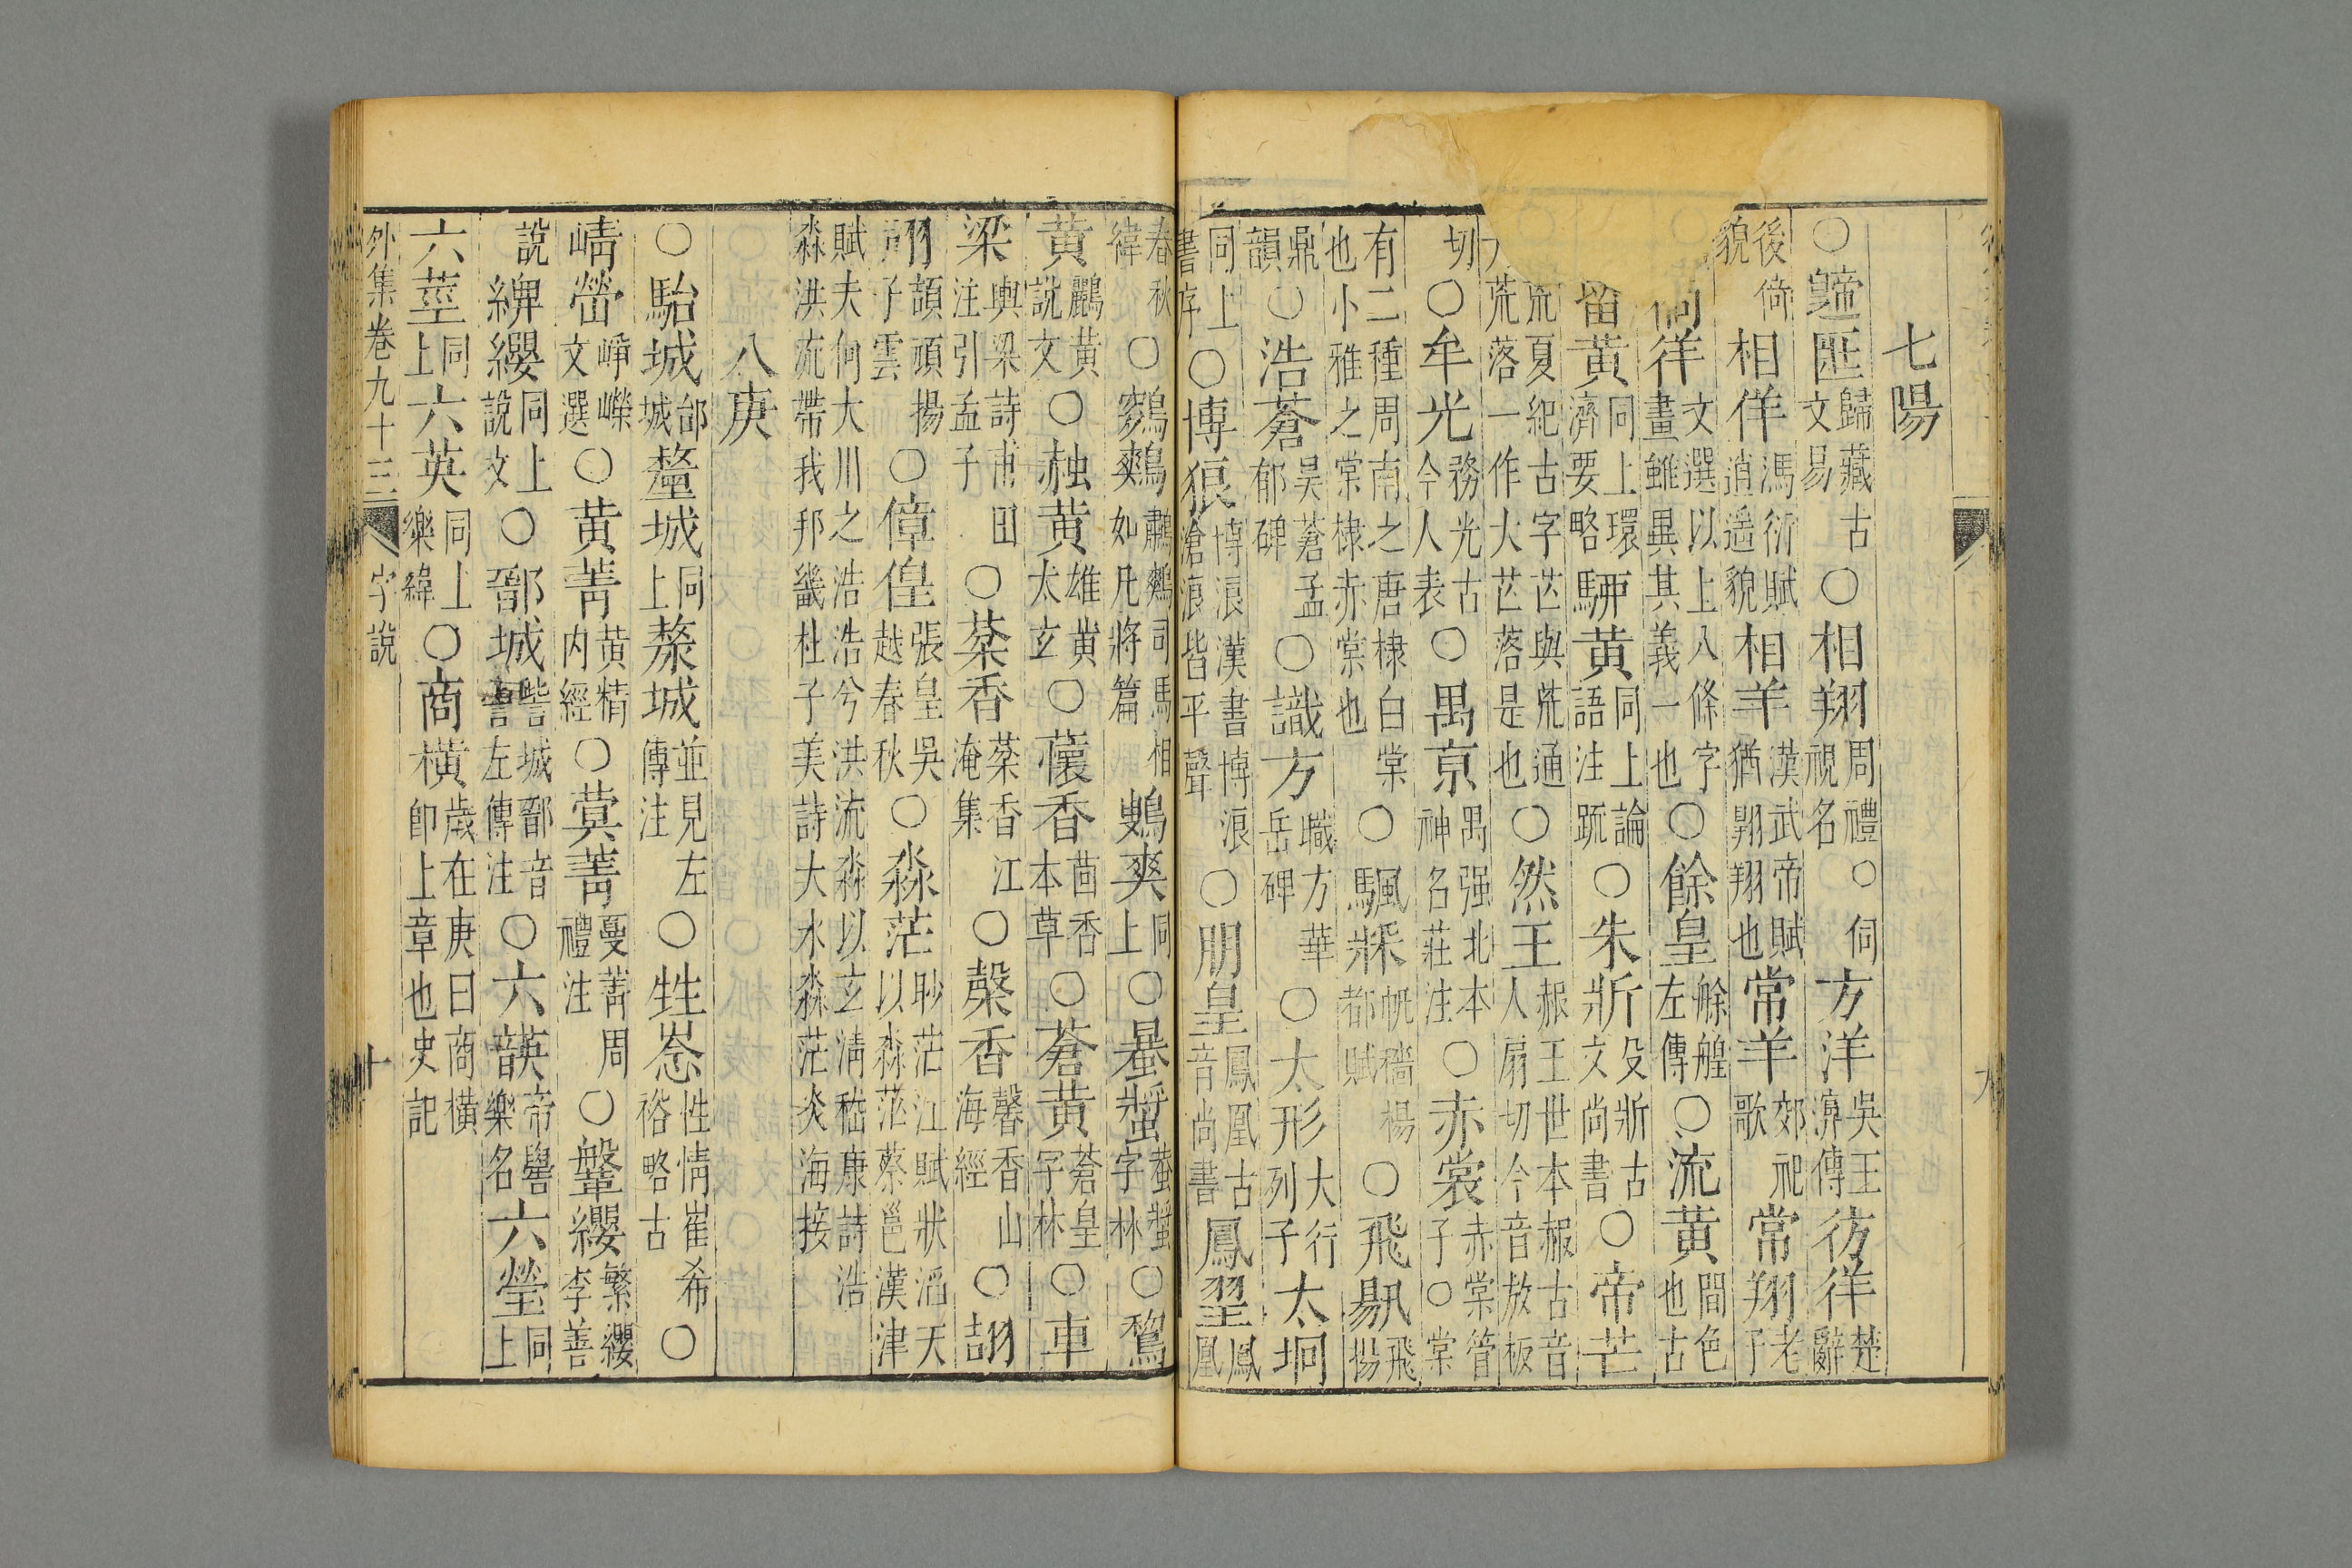 七陽
○匪歸藏古文易○相翔周禮視名○伺方洋吳王濞傳彷徉楚辭
後倚貌相佯馮衍賦逍遥貌相羊漢武帝賦猶翱翔也常羊郊祀歌常翔老子
徉文選以上八條字畫雖異其義一也○餘皇艅艎左傳○流黃間色也古
留黃同上環濟要略駵黃同上論語注疏○朱斨殳斨古文尚書○帝芒
荒夏紀古字芒與荒通荒落一作大芒落是也○然王赧王世本赧古音人扇切今音放板
切○牟光務光古今人表○禺京禺强北本神名莊注○赤裳赤棠管子○棠
有二種周南之唐棣白棠也小雅之棠棣赤棠也○飛飛揚
鼎韻○浩蒼吳蒼孟郁碑○識方職方華岳碑○太形大行列子太坰
同上書序○博狼博浪漢書博浪滄浪皆平聲○朋皇鳳凰古音尚書鳳翌鳳凰
春秋緯○鷫鷞司馬相如凡將篇爽同上○字林○鶖
黃鸝黃說文○黃雄黃太玄○蘹香茴香本草○蒼黃蒼皇字林○車
梁輿梁詩甫田注引孟子○菜香菜香江淹集○漀香馨香山海經○頡
翃頡頏揚子雲○偉偟張皇吳越春秋○淼茫眇茫江賦狀滔天以淼茫蔡邕漢津
賦夫何大川之浩浩兮洪流淼以玄清嵇康詩浩淼洪流帶我邦畿杜子美詩大水淼茫炎海接
八庚
○駘城邰城釐城同上斄城並見左傳注○性情崔希裕略古○
崝嶸文選○黃菁黃精内經○蓂菁蔓菁周禮注○鞶纓繁纓李善
說綼纓同上說文○鄑城訾城鄑音左傳注○六韺帝嚳樂名六瑩同上
六莖同上六英同上樂緯○商橫歲在庚曰商橫卽上章也史記
外集卷九十三
字說
十
九